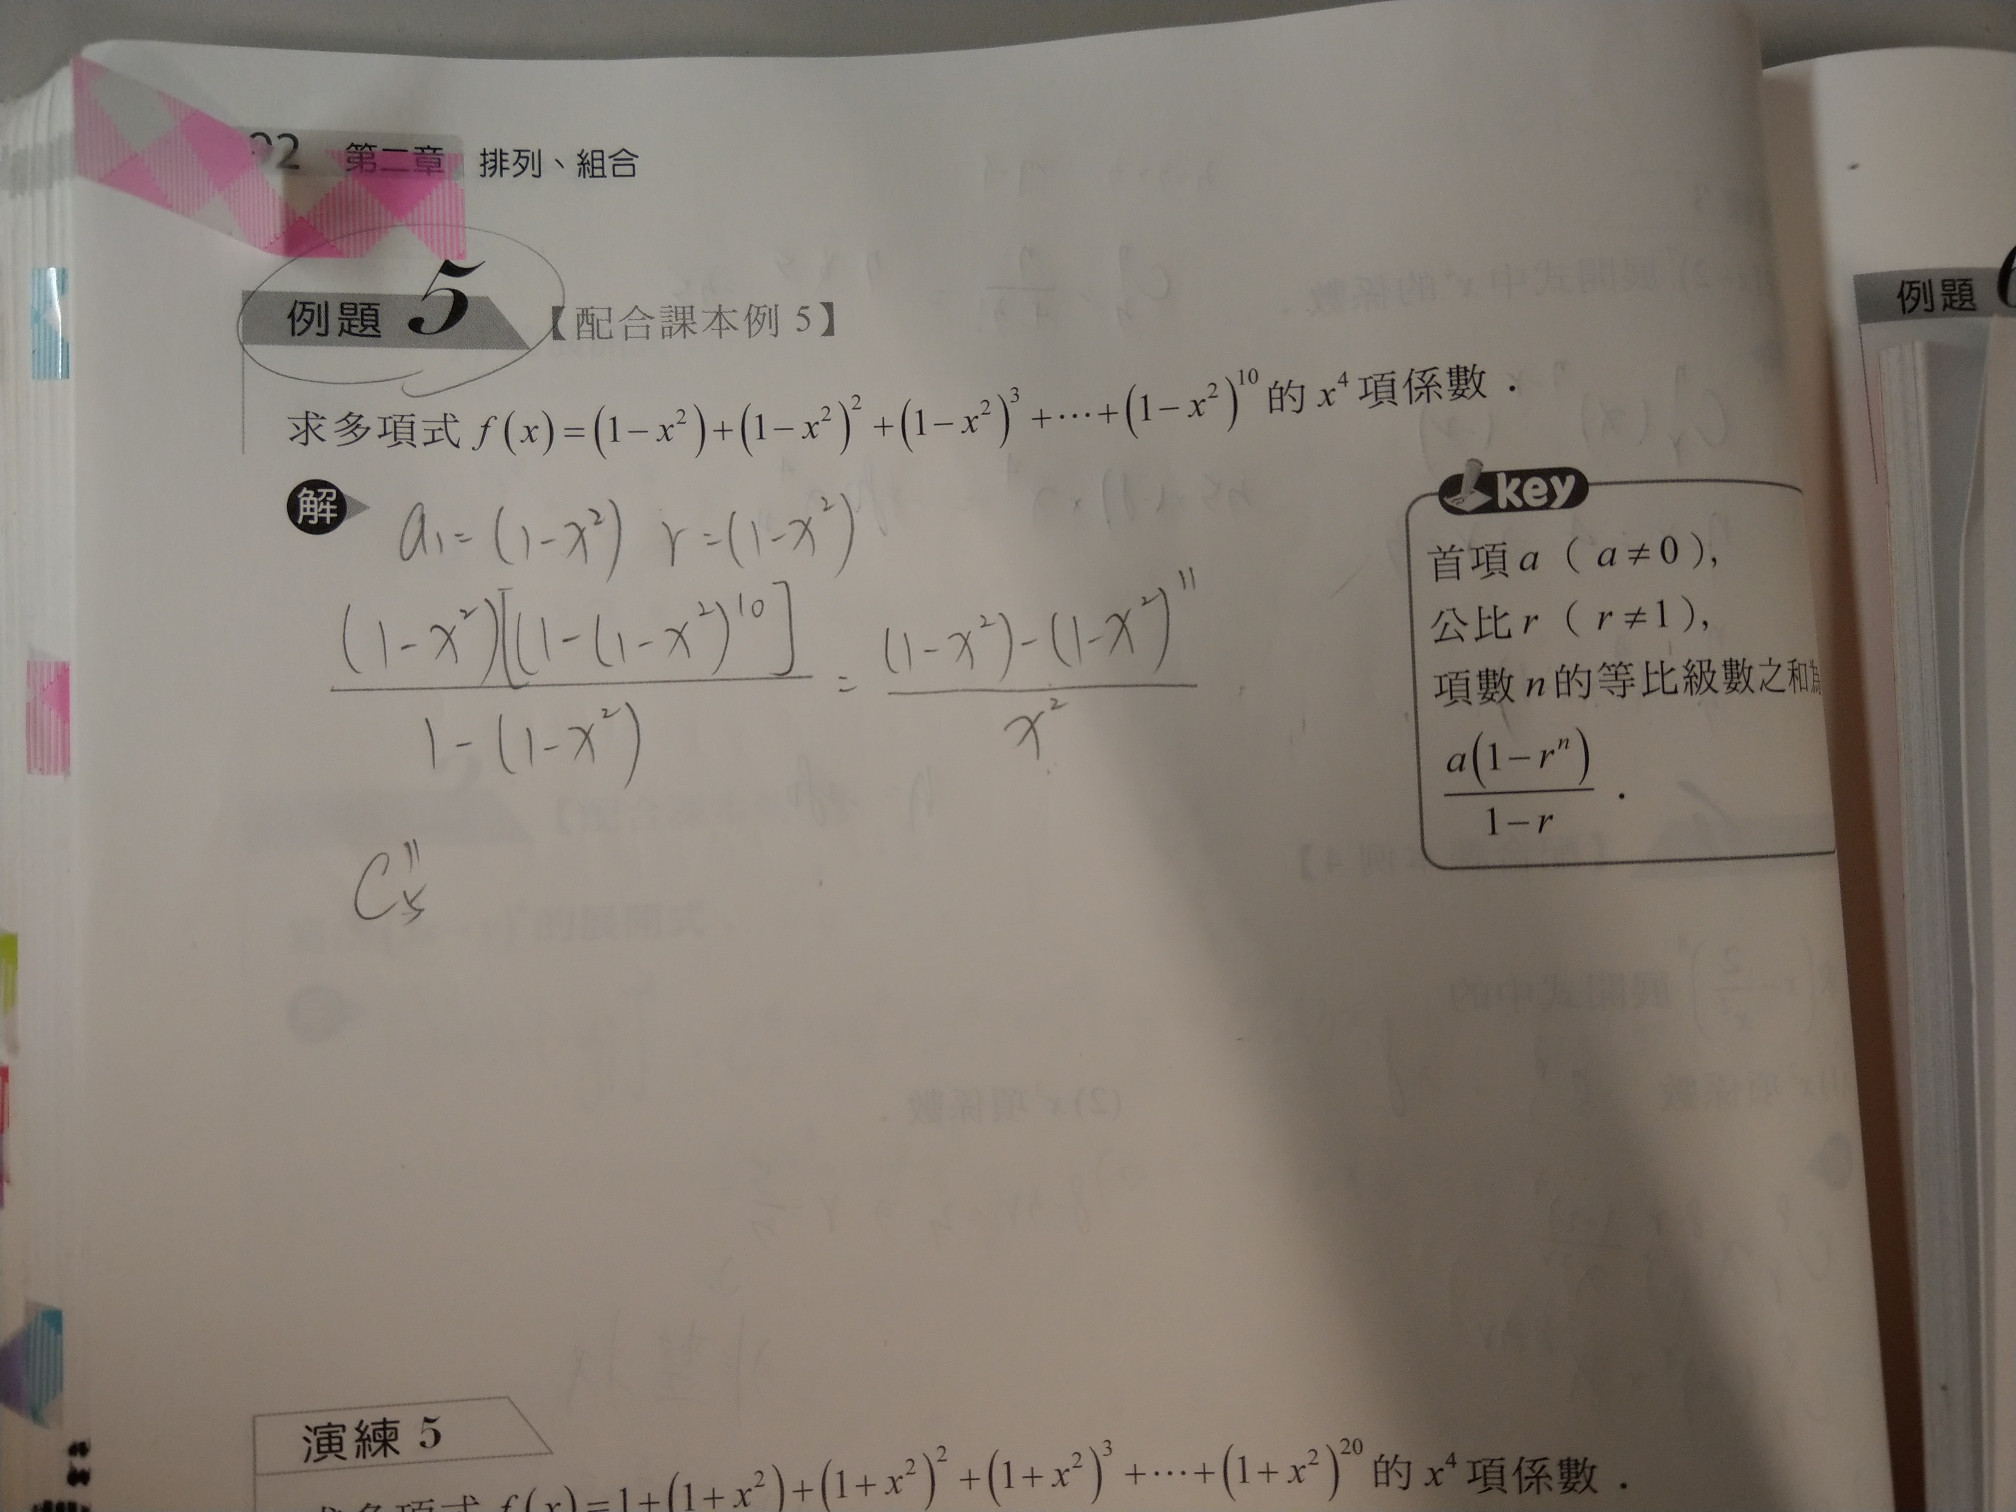 第二章 排列、組合
例題 5 【配合課本例 5】
求多項式 f(x)=(1-x²)+(1-x²)²+(1-x²)³+⋯+(1-x²)¹⁰ 的 x⁴ 項係數．
解
a₁=(1-x²) r=(1-x²)
(1-x²)[(1-(1-x²)¹⁰] / 1-(1-x²) = (1-x²)-(1-x²)¹¹ / x²
key
首項 a ( a≠0 ),
公比 r ( r≠1 ),
項數 n 的等比級數之和為
a(1-rⁿ) / 1-r ．
演練 5
求多項式 f(x)=1+(1+x²)+(1+x²)²+(1+x²)³+⋯+(1+x²)²⁰ 的 x⁴ 項係數．
例題